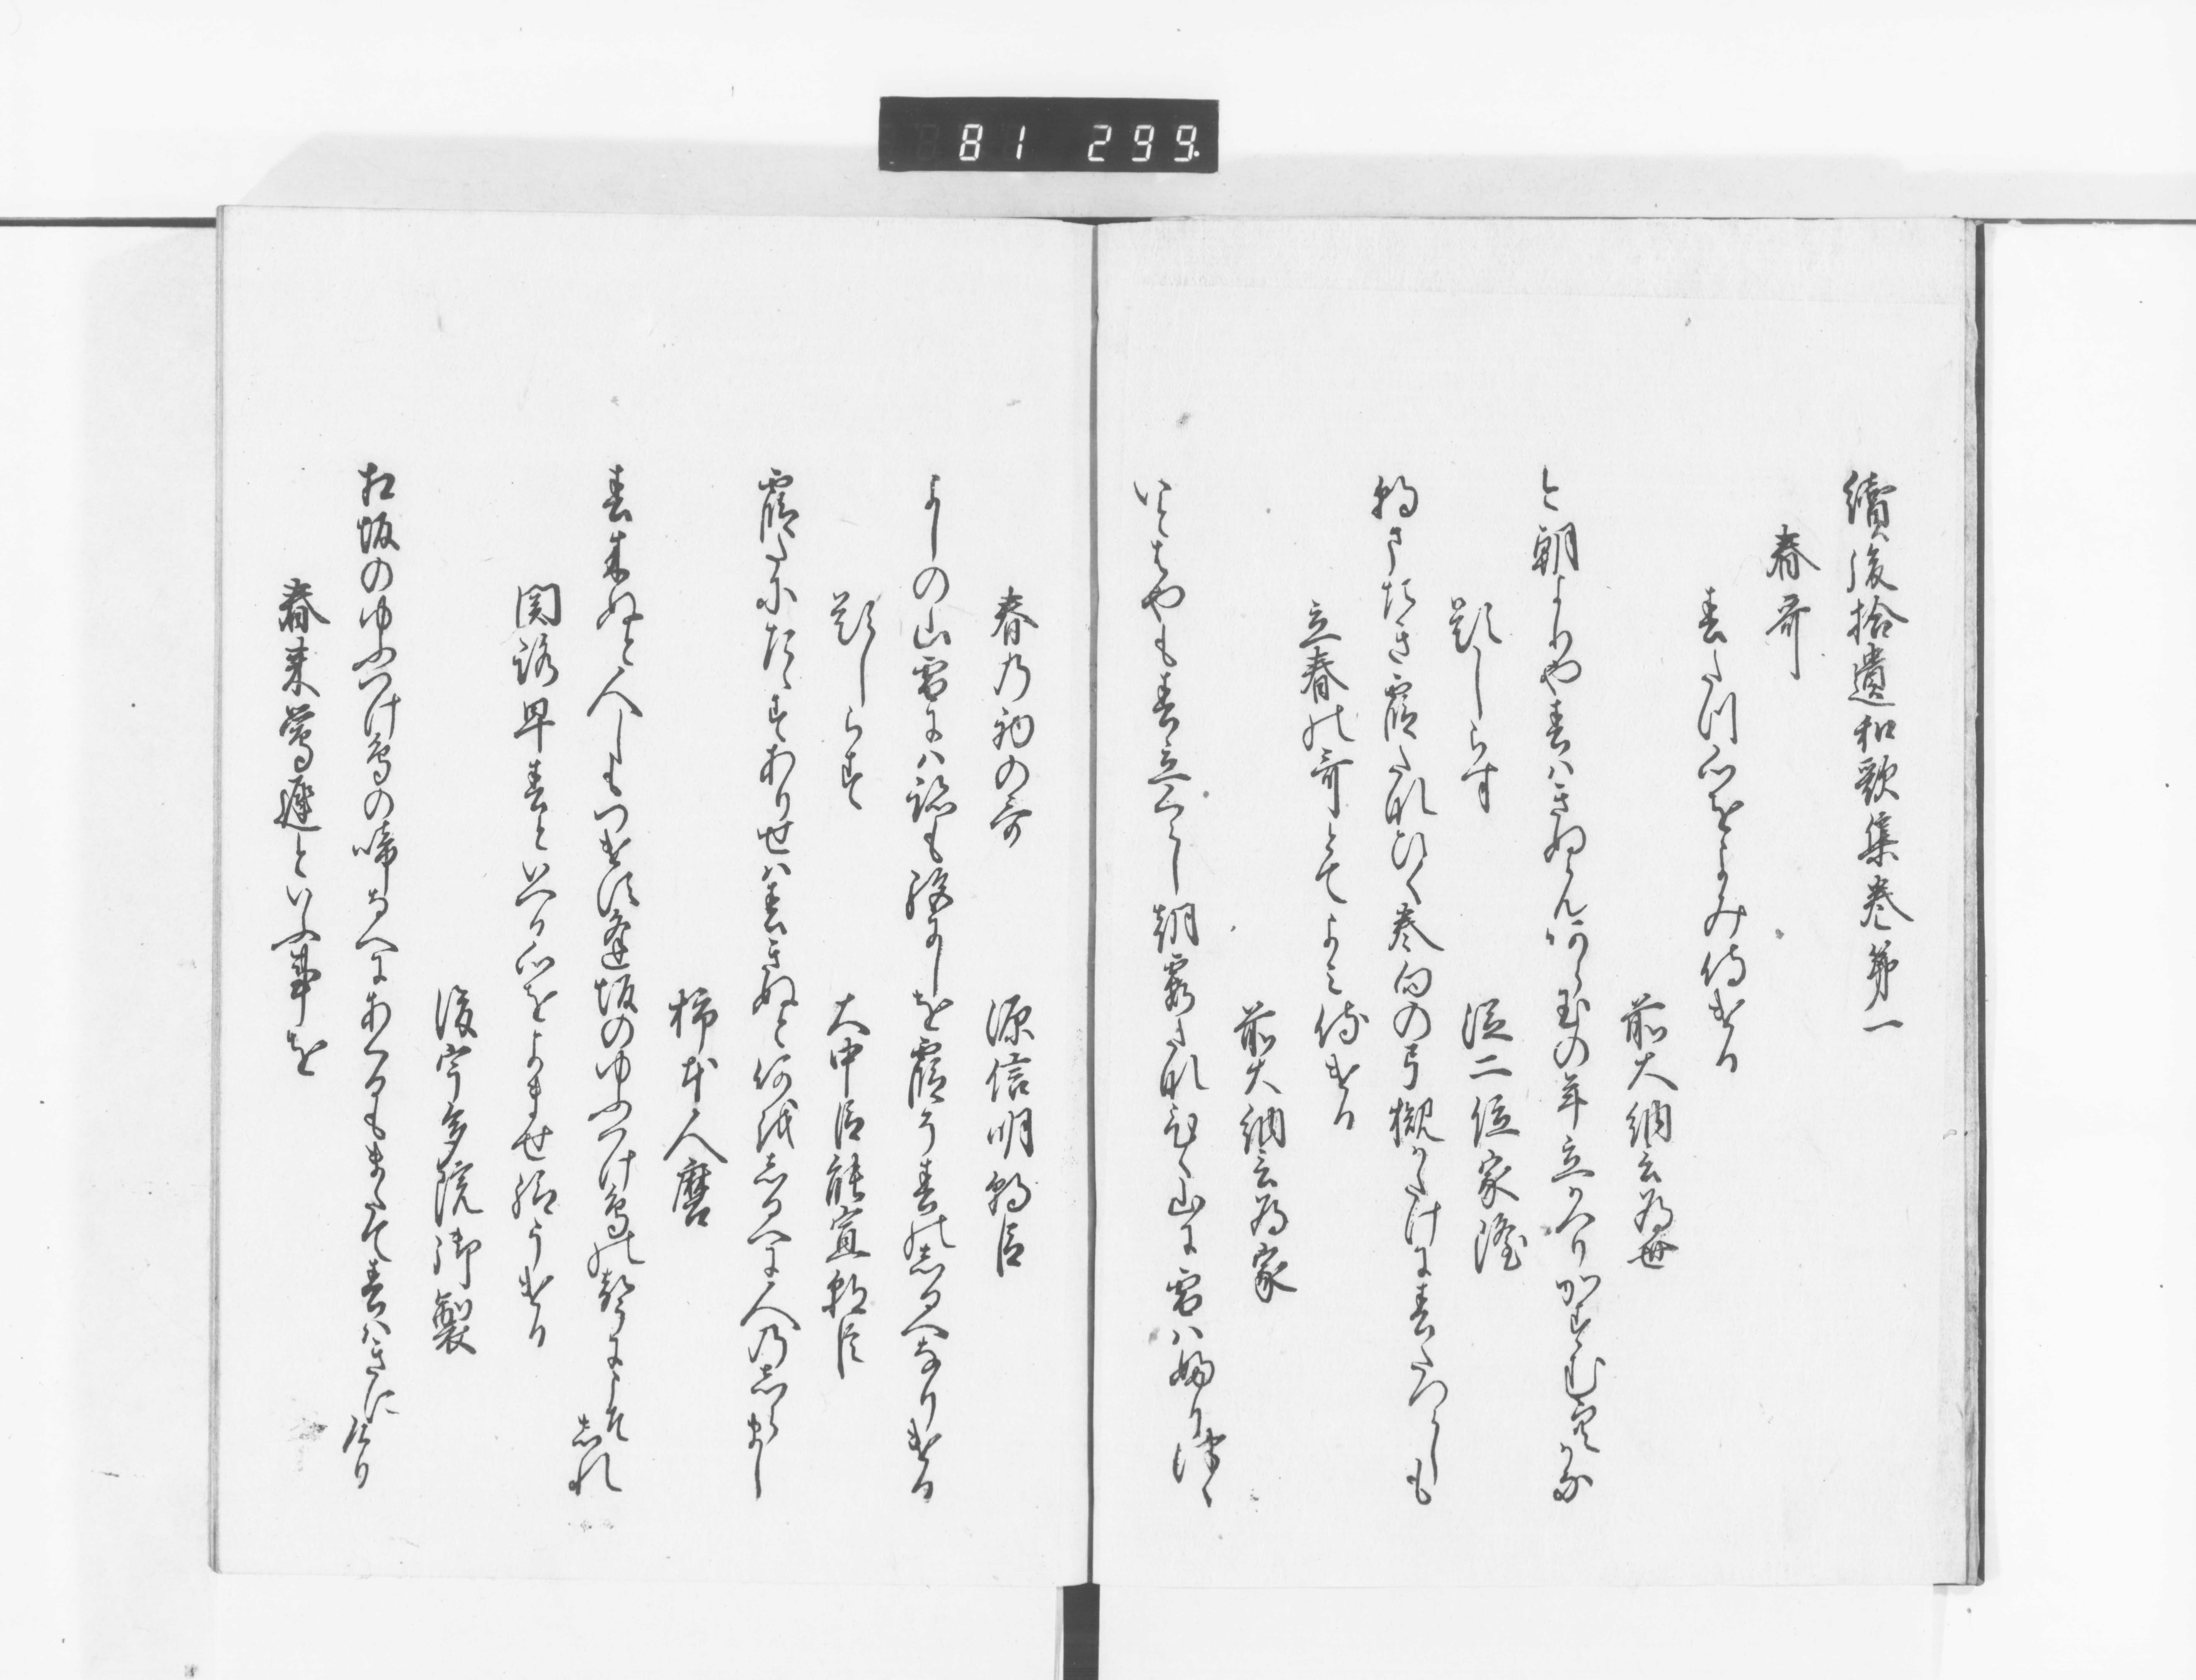 81 299.
續後拾遺和歌集巻第一
春哥
春たつ心をよみ侍ける
前大納言為世
今朝よりや春はきぬらんあら玉の年立かへりかすむ空かな
題しらす
従二位家隆
朝またき霞たなひく巻向の弓槻かたけに春たつらしも
立春の哥とてよみ侍ける
前大納言為家
いとはやも春立くらし朝霞たなひく山に雪はふりつゝ
春乃初の哥
源信明朝臣
よしの山雪には跡も絶にしを霞そ春のしるへなりける
題しらす
大中臣能宣朝臣
霞たにたゝすありせは春きぬと何をしるへに人乃しらまし
柿本人麿
春来ぬと人しもつけす逢坂のゆふつけ鳥の聲にこそしれ
関路早春といへる心をよませ給うける
後宇多院御製
相坂のゆふつけ鳥の啼なへにあくるもまたて春はきにけり
春来鶯遅といふ事を